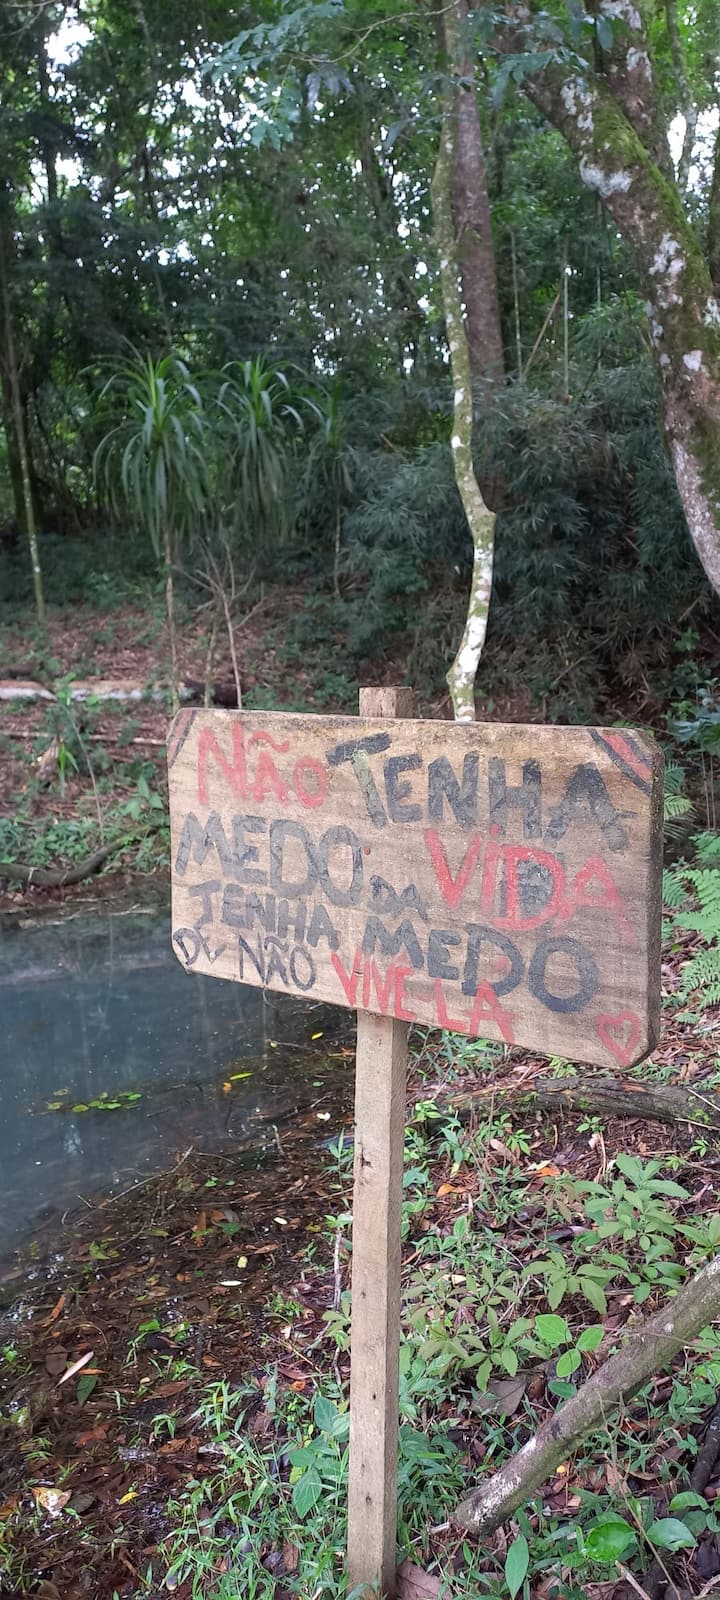 NÃO TENHA
MEDO DA VIDA
TENHA MEDO
DE NÃO VIVÊ-LA